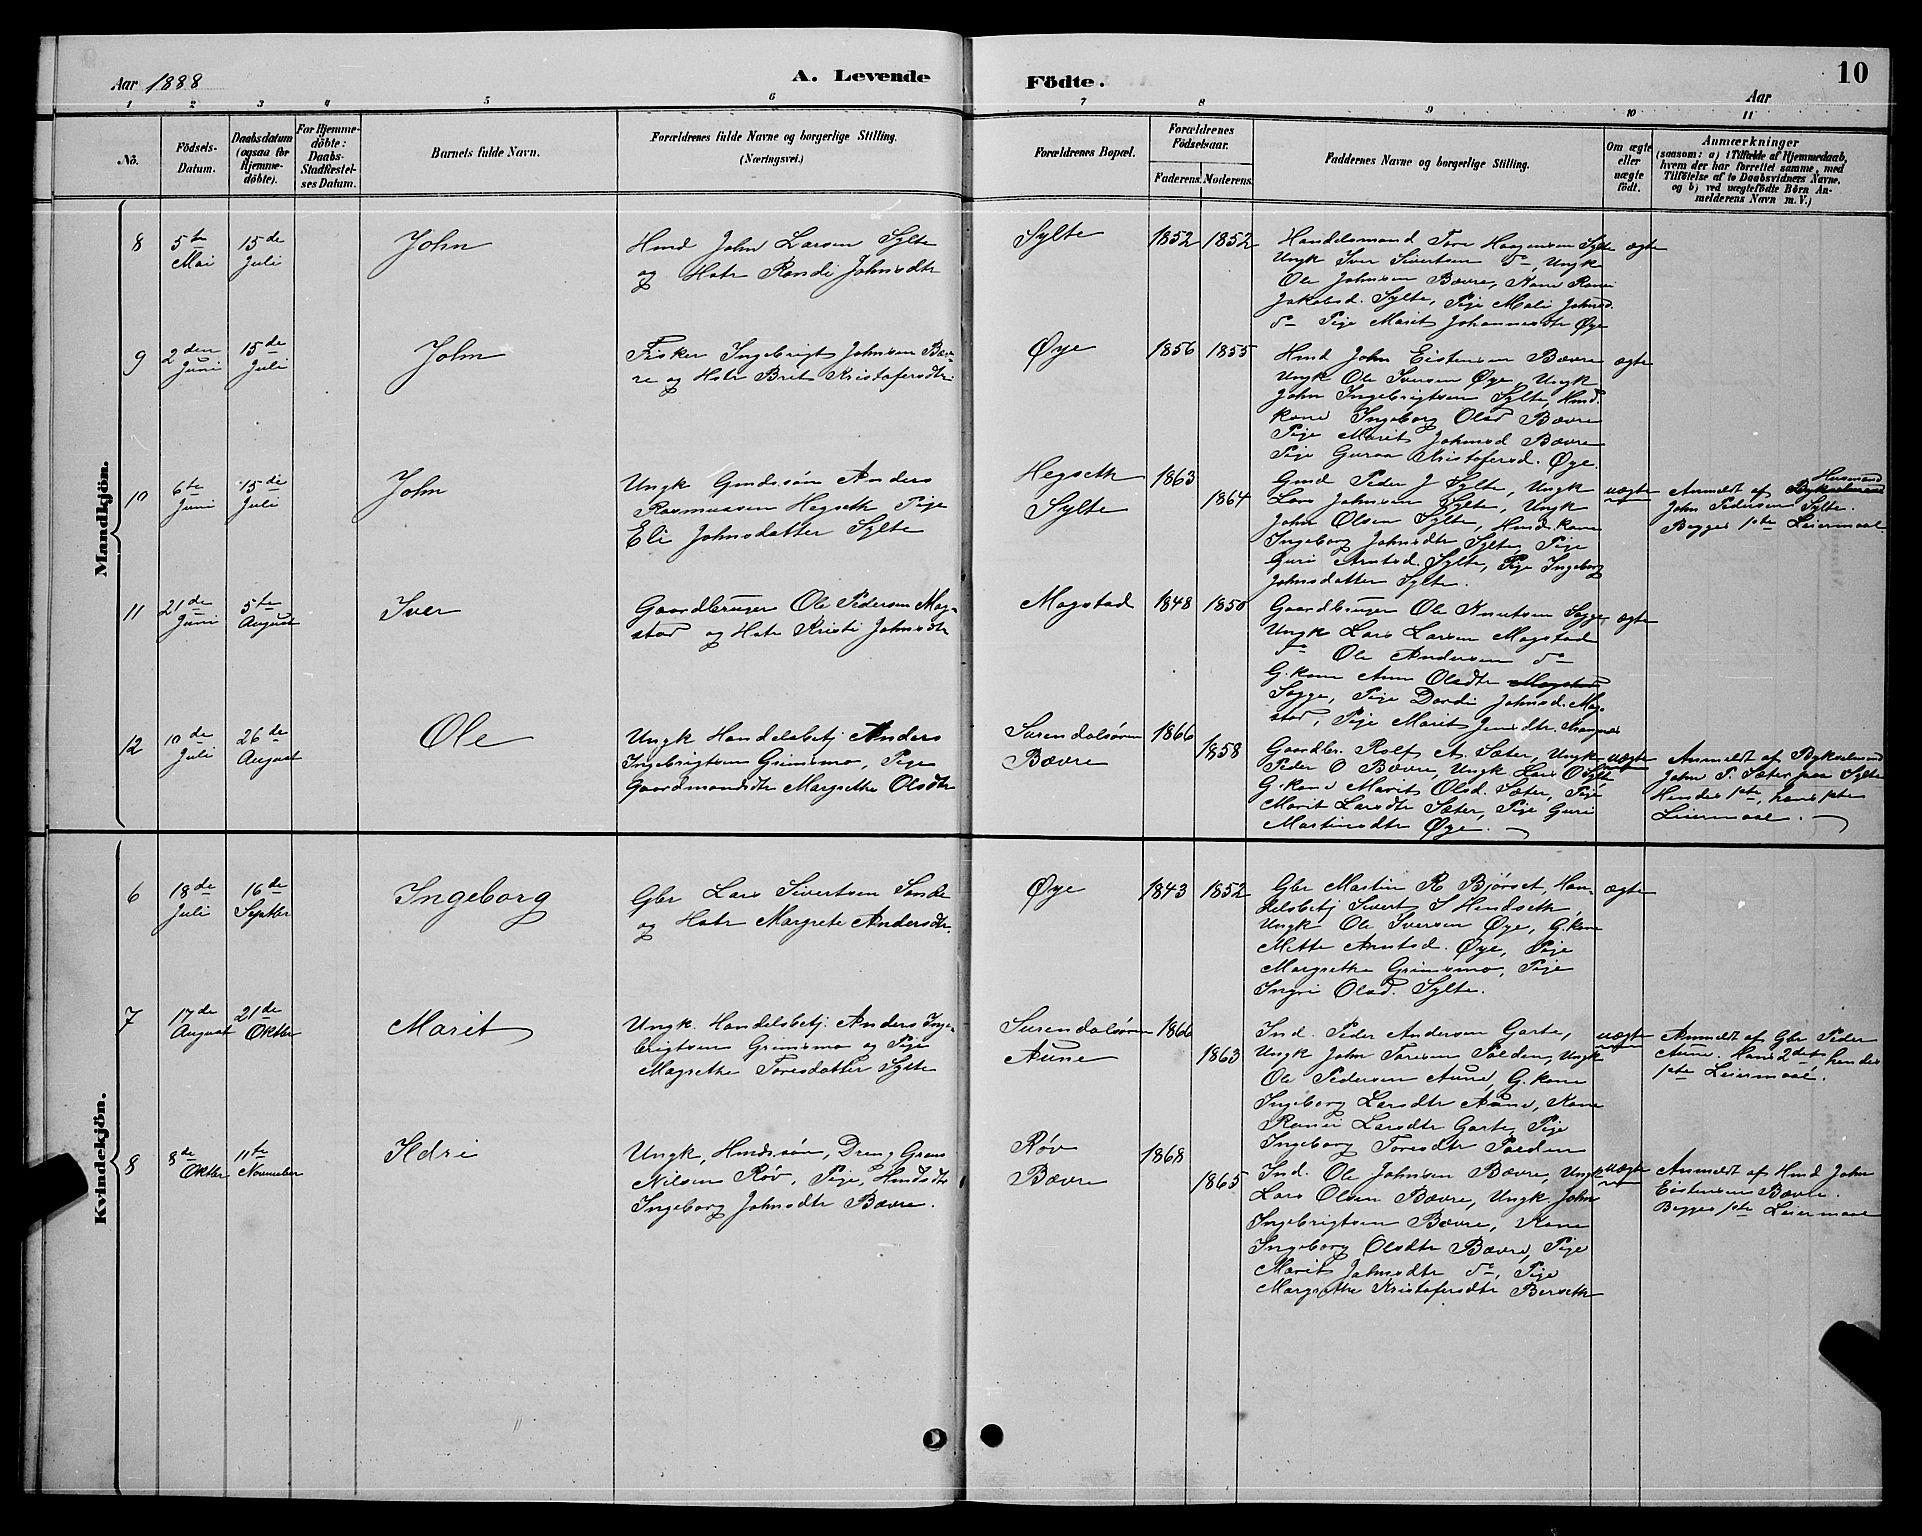 Aar 1888
A. Levende
Födte.
10
Aar
1 2 3 4 5 6 7 8 9 10 11
No.
Födsels-Datum.
Daabsdatum (ogsaa for Hjemme-döbte).
For Hjemme-döbte: Daabs-Stadfæstel-ses Datum.
Barnets fulde Navn.
Forældrenes fulde Navne og borgerlige Stilling. (Næringsvei.)
Forældrenes Bopæl.
Forældrenes Födselsaar.
Faderens. Moderens.
Faddernes Navne og borgerlige Stilling.
Om ægte eller uægte födt.
Anmærkninger
(saasom: a) i Tilfælde af Hjemmedaab,
hvem der har forrettet samme, med
Tilföielse af to Daabsvidners Navne,
og b) ved uægtefödte Börn An-
melderens Navn m. V.)
Mandkjön.
8
5te Mai
15de Juli
John
Hmd John Larsen Sylte
og Hstr Randi Johnsdtr
Sylte
1852 1852
Handelsmand Tore Haagensen Sylte
Ungk Iver Sivertsen do, Ungk
Ole Johnsen Bævre, Kone
Jakobsd. Sylte, Pige Mali Johnsd.
do Pige Marit Johannesdtr Øye
ægte
9
2den Juni
15de Juli
John
Fisker Ingebrigt Johnsen Bæv-
re og Hstr Brit Kristofersdtr
Øye
1856 1855
Hmd John Eistensen Bævre
Ungk Ole Iversen Øye, Ungk
John Ingebrigtsen Sylte, Hmd.
kone Ingeborg Olsd Bævre
Pige Marit Johnsd Bævre
Pige Guraa Kristofersd. Øye.
ægte
10
6te Juni
15de Juli
John
Ungk Gmdssøn Anders
Rasmussen Hegseth Pige
Eli Johnsdatter Sylte
Hegseth
Sylte
1863
1864
Gmd Peder J Sylte, Ungk
Lars Johnsen Sylte, Ungk
John Olsen Sylte, Hmd. kone
Ingeborg Johnsdtr Sylte, Pige
Guri Arntsd. Sylte, Pige Ingeborg
Johnsdatter Sylte.
uægte
Husmand
Anmeldt af
John Pedersen Sylte.
Begges 1ste Leiermaal
11
21de Juni
5te August
Iver
Gaardbruger Ole Pedersen Mog-
stad og Hstr Kristi Johnsdtr
Mogstad
1848 1850
Gaardbruger Ole Knutsen Sogge
Ungk Lars Larsen Mogstad
do Ole Andersen do
G. kone Ane Olsdtr Mogstad
Sogge, Pige Dordi Johnsd. Mog-
stad, Pige Marit Jensdtr
ægte
12
10de Juli
26de August
Ole
Ungk Handelsbetj Anders
Ingebrigtsen Grimsmo, Pige
Gaardmandsdtr Margrethe Olsdtr
Surendalsøren
Bævre
1866
1858
Gaardbr. Rolf A. Sæter, Ungk
Peder O Bævre, Ungk Lars O Sylte
G. kone Marit Olsd. Sæter, Pige
Marit Larsdtr Sæter, Pige Guri
Martinsdtr Øye.
uægte
Anmeldt af Bykselmand
John P. Sæter paa Sylte
Hendes 1ste, hans 1ste
Leiermaal.
Kvindekjön.
6
18de Juli
16de Septbr
Ingeborg
Gbr Lars Sivertsen Sande
og Hstr Margrete Andersdtr.
Øye
1843 1852
Gbr Martin R Bjørset, Han-
delsbetj Sivert S Hendseth,
Ungk Ole Iversen Øye, G. kone
Mette Arntsd. Øye, Pige
Margrethe Grimsmo, Pige
Ingri Olsd. Sylte.
ægte
7
17de August
21de Oktbr
Marit
Ungk. Handelsbetj Anders Inge-
brigtsen Grimsmo og Pige
Magrethe Toresdatter Sylte
Surendalsøren
Aune
1866
1863
Ind. Peder Andersen Garte,
Ungk John Toresen Polden, Ungk
Ole Pedersen Aune, G. kone
Ingeborg Larsdtr Aune, Kone
Larsdtr Garte, Pige
Ingeborg Toresdtr Polden
uægte
Anmeldt af Gbr Peder
Aune. Hans 2det, hendes
1ste Leiermaal.
8
8de Oktbr
11te November
Ildri
Ungk, Hmdssøn, Dreng
Nilsen Røv, Pige, Hmdsdtr
Ingeborg Johnsdtr Bævre.
Røv
Bævre
1868
1865
Ind. Ole Johnsen Bævre, Ungk
Lars Olsen Bævre, Ungk. John
Ingebrigtsen Bævre, Kone
Ingeborg Olsdtr Bævre, Pige
Marit Johnsdtr do, Pige
Margrethe Kristofersdtr
uægte
Anmeldt af Hmd John
Eistensen Bævre.
Begges 1ste Leiermaal